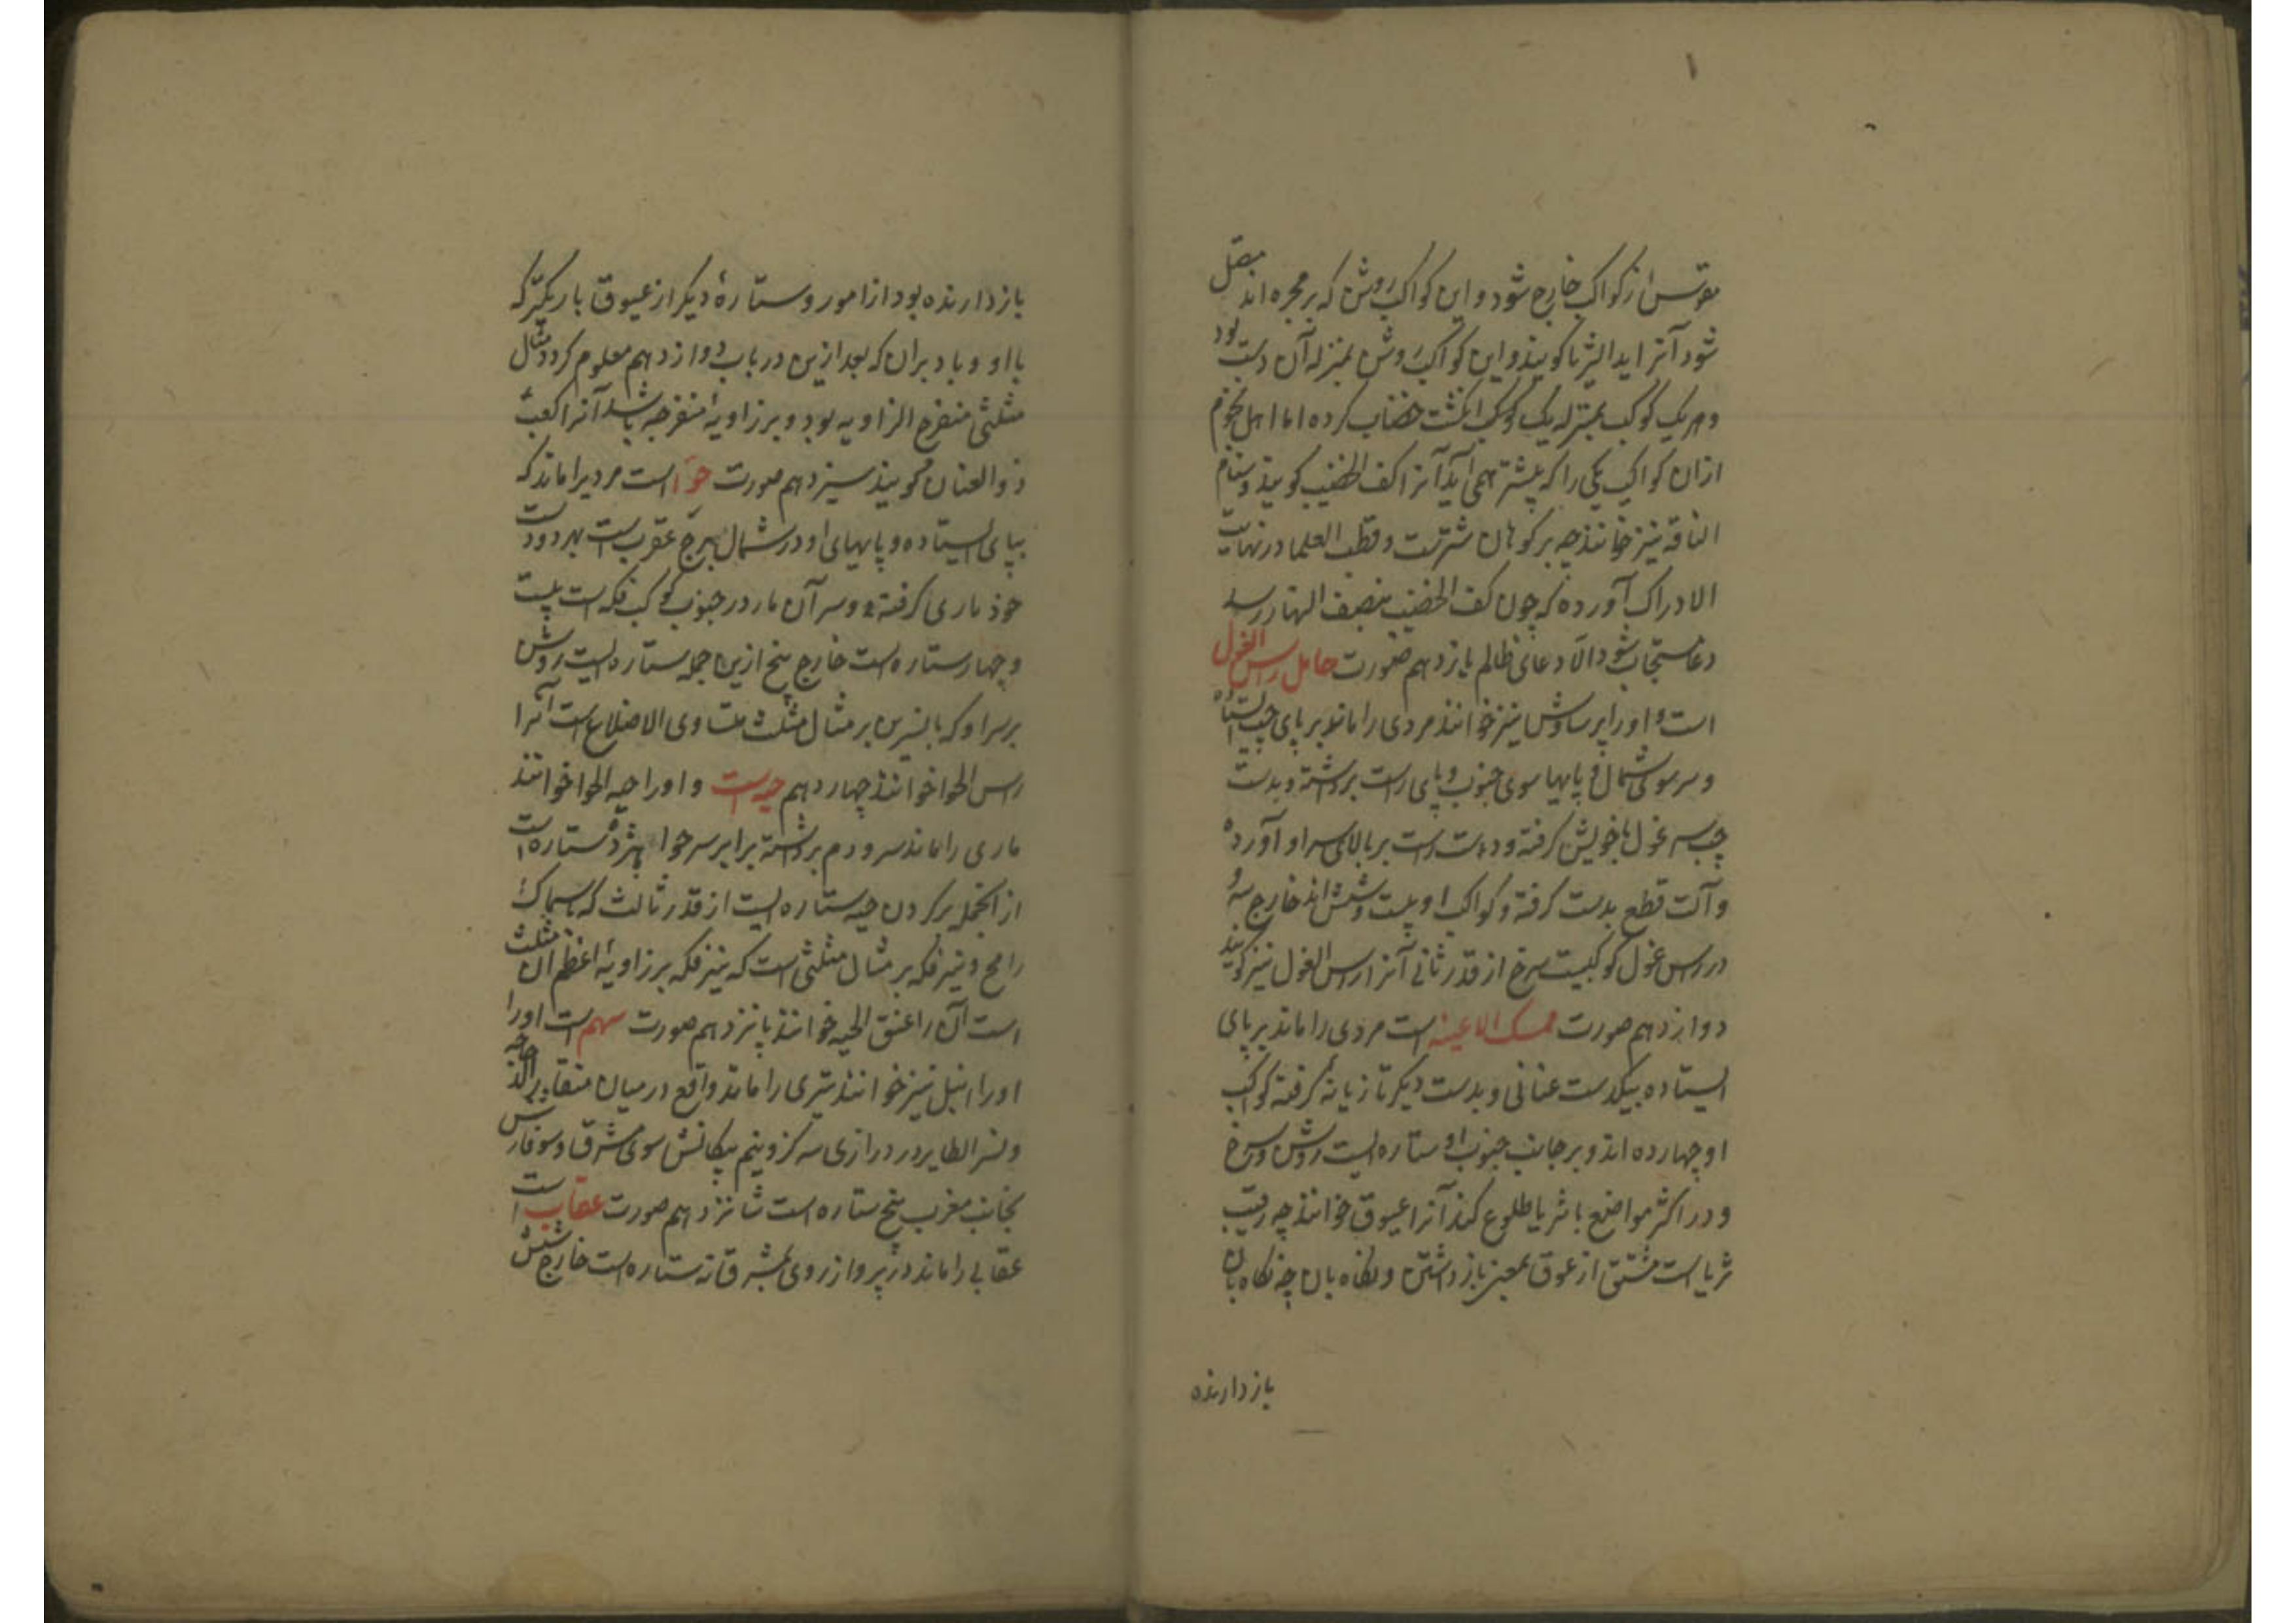 ۱
مقوس از کواکب خارج شود و این کواکب روشن که بر مجره اند متصل
شود آنرا ید الثریا کویند و این کواکب روشن بمنزله آن دست بود
و هر یک کوکب بمنزله یک انکشت خضاب کرده اما اهل نجوم
ازان کواکب یکی را که پیشتر همی آید آنرا کف الخضیب کویند و سنام
الناقه نیز خوانند چه بر کوهان شترست و قطب العلما در نهایت
الادراک آورده که چون کف الخضیب بنصف النهار رسد
دعا مستجاب شود الا دعای ظالم یازدهم صورت حامل راس الغول
است و اورا برساوش نیز خوانند مردی را ماند بر پای چپ ایستاده
و سر سوی شمال و پایها سوی جنوب و پای راست برداشته و بدست
چپ سر غول با خویش کرفته و دست راست بر بالای سر او آورده
و آلت قطع بدست کرفته و کواکب او بیست و شش اند خارج سه و
در راس غول کوکبیست سرخ از قدر ثانی آنرا راس الغول نیز کویند
دوازدهم صورت ممسک الاعنه است مردی را ماند بر پای
ایستاده بیکدست عنانی و بدست دیکر تازیانه کرفته کواکب
او چهارده اند و بر جانب جنوب او ستاره ایست روشن و سرخ
و در اکثر مواضع با ثریا طلوع کند آنرا عیوق خوانند چه رقیب
ثریا است مشتق از عوق بمعنی بازداشتن و نکاه بان چه نکاه بان
بازدارنده
بازدارنده بود از امور و ستارهٔ دیکر از عیوق باریکتر که
با او و با دبران که بعد ازین در باب دوازدهم معلوم کردد مثال
مثلثی منفرج الزاویه بود و بر زاویهٔ منفرجه باشد آنرا کعب
ذو العنان کویند سیزدهم صورت حوا است مردیرا ماند که
بپای ایستاده و پایهای او در شمال برج عقرب است بهر دو دست
خود ماری کرفته و سر آن مار در جنوب کوکب فکه است بیست
و چهار ستاره است خارج پنج ازین جمله ستاره ایست روشن
بر سر او که با نسرین بر مثال مثلث متساوی الاضلاع است آنرا
راس الحوا خوانند چهاردهم حیه است و اورا حیه الحوا خوانند
ماری را ماند سر و دم برداشته برابر سر حوا هژده ستاره است
از انجمله بر کردن حیه ستاره ایست از قدر ثالث که با سماک
رامح و نیر فکه بر مثال مثلثی است که نیر فکه بر زاویهٔ اعظم آن مثلث
است آن را عنق الحیه خوانند پانزدهم صورت سهم است اورا
اورا نبل نیز خوانند تیری را ماند واقع در میان منقار الدجاجه
و نسر الطایر در درازی سه کز و نیم پیکانش سوی مشرق و سوفارش
بجانب مغرب پنج ستاره است شانزدهم صورت عقاب است
عقابی را ماند در پرواز روی بمشرق نه ستاره است خارج شش